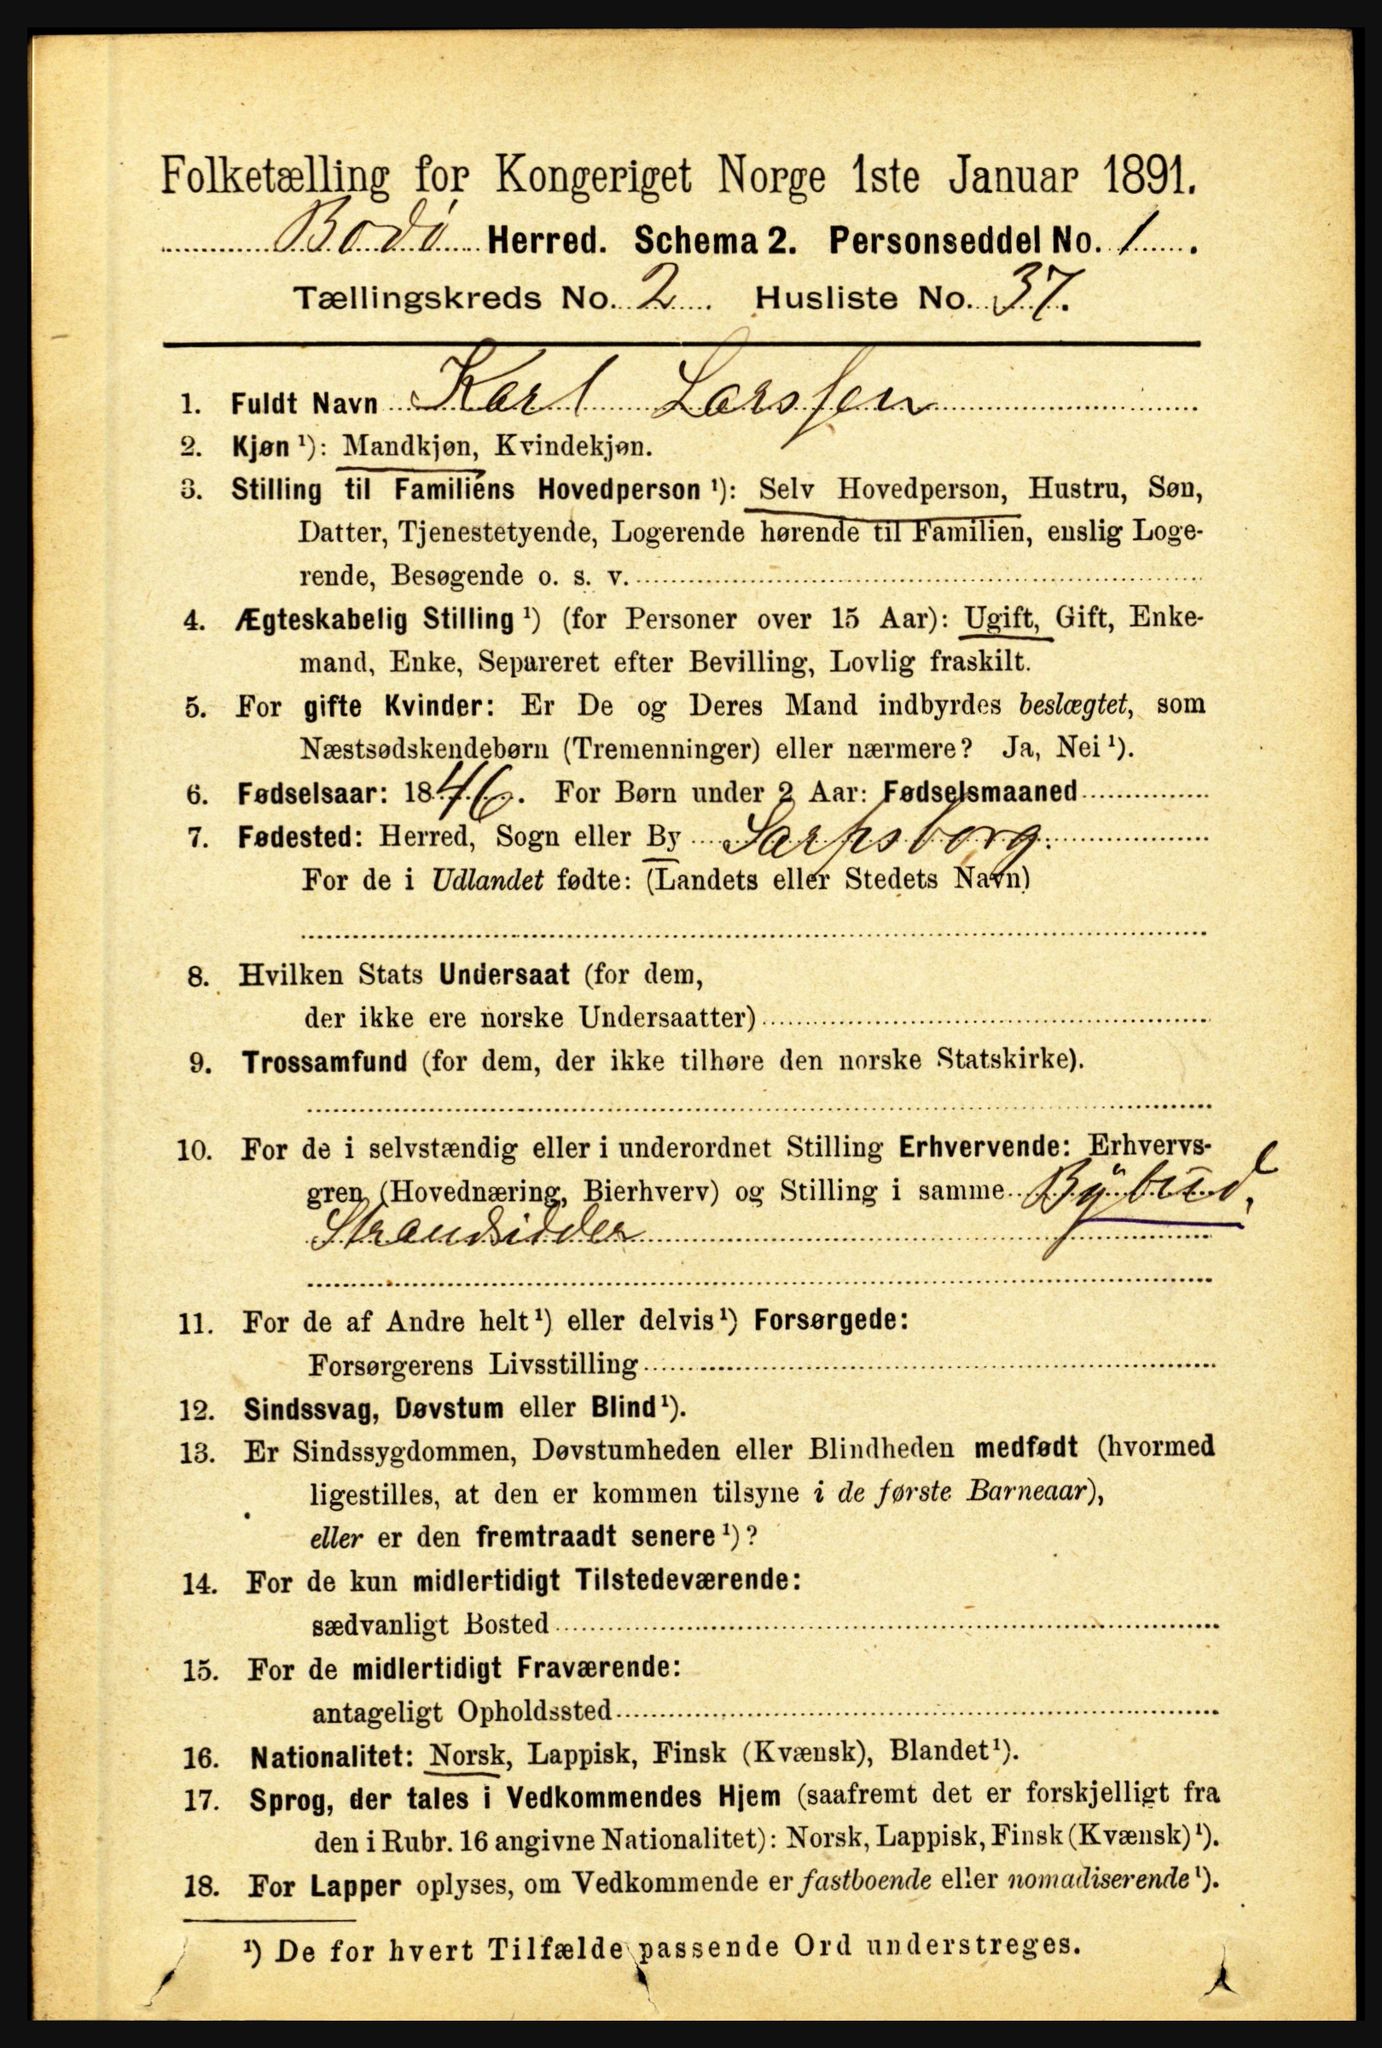 Folketælling for Kongeriget Norge 1ste Januar 1891.
Bodø Herred. Schema 2. Personseddel No. 1.
Tællingskreds No. 2. Husliste No. 37.
1. Fuldt Navn Karl Larssen
2. Kjøn ¹): Mandkjøn, Kvindekjøn.
3. Stilling til Familiens Hovedperson ¹): Selv Hovedperson, Hustru, Søn,
Datter, Tjenestetyende, Logerende hørende til Familien, enslig Loge-
rende, Besøgende o. s. v.
4. Ægteskabelig Stilling ¹) (for Personer over 15 Aar): Ugift, Gift, Enke-
mand, Enke, Separeret efter Bevilling, Lovlig fraskilt.
5. For gifte Kvinder: Er De og Deres Mand indbyrdes beslægtet, som
Næstsødskendebørn (Tremenninger) eller nærmere? Ja, Nei ¹).
6. Fødselsaar: 1846. For Børn under 2 Aar: Fødselsmaaned
7. Fødested: Herred, Sogn eller By Sarpsborg.
For de i Udlandet fødte: (Landets eller Stedets Navn)
8. Hvilken Stats Undersaat (for dem,
der ikke ere norske Undersaatter)
9. Trossamfund (for dem, der ikke tilhøre den norske Statskirke).
10. For de i selvstændig eller i underordnet Stilling Erhvervende: Erhvervs-
gren (Hovednæring, Bierhverv) og Stilling i samme Bybud,
Strandsidder
11. For de af Andre helt ¹) eller delvis ¹) Forsørgede:
Forsørgerens Livsstilling
12. Sindssvag, Døvstum eller Blind ¹).
13. Er Sindssygdommen, Døvstumheden eller Blindheden medfødt (hvormed
ligestilles, at den er kommen tilsyne i de første Barneaar),
eller er den fremtraadt senere ¹)?
14. For de kun midlertidigt Tilstedeværende:
sædvanligt Bosted
15. For de midlertidigt Fraværende:
antageligt Opholdssted
16. Nationalitet: Norsk, Lappisk, Finsk (Kvænsk), Blandet ¹).
17. Sprog, der tales i Vedkommendes Hjem (saafremt det er forskjelligt fra
den i Rubr. 16 angivne Nationalitet): Norsk, Lappisk, Finsk (Kvænsk) ¹).
18. For Lapper oplyses, om Vedkommende er fastboende eller nomadiserende ¹).
¹) De for hvert Tilfælde passende Ord understreges.